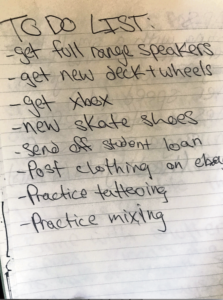 TO DO LIST:
-get full range speakers
-get new deck+wheels
-get xbox
-new skate shoes
-send off student loan
-Post clothing on ebay
-Practice tattooing
-Practice mixing